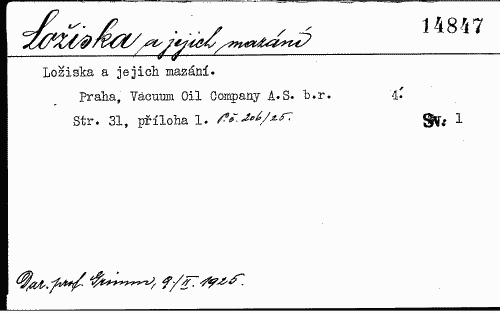 Ložiska a jejich mazání 14847
Ložiska a jejich mazání.
Praha, Vacuum Oil Company A.S. b.r. 4.
Str. 31, příloha 1. P.č. 206/25. Sv: 1
Dar. prof. Grimm, 9/II. 1925.